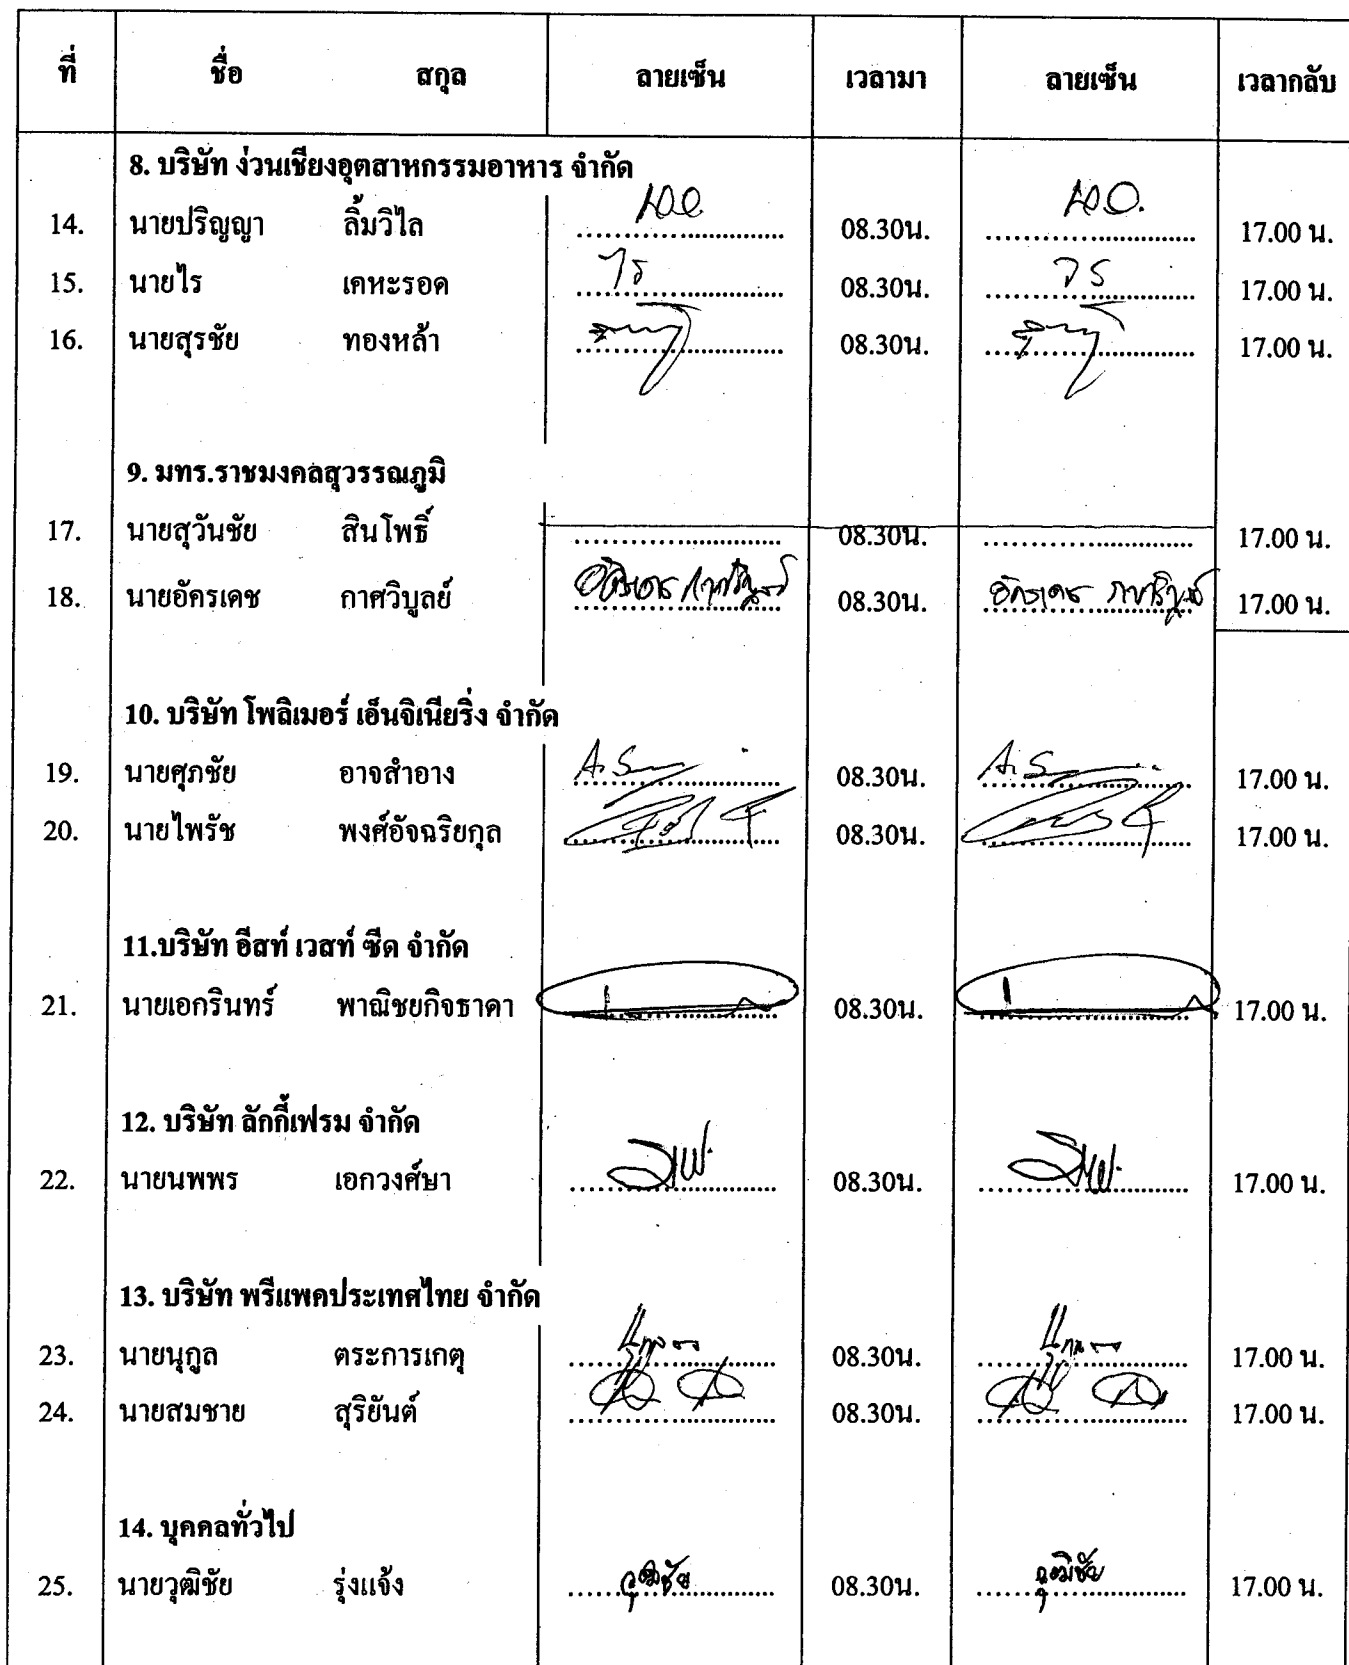 ที่ ชื่อ สกุล ลายเซ็น เวลามา ลายเซ็น เวลากลับ
8. บริษัท ง่วนเชียงอุตสาหกรรมอาหาร จำกัด
14. นายปริญญา ลิ้มวิไล ........................ 08.30น. ........................ 17.00 น.
15. นายไร เคหะรอด ไร ........................ 08.30น. ........................ 17.00 น.
16. นายสุรชัย ทองหล้า ........................ 08.30น. ........................ 17.00 น.
9. มทร.ราชมงคลสุวรรณภูมิ
17. นายสุวันชัย สินโพธิ์ ........................ 08.30น. ........................ 17.00 น.
18. นายอัครเดช กาศวิบูลย์ อัครเดช กาศวิบูลย์ 08.30น. อัครเดช กาศวิบูลย์ 17.00 น.
10. บริษัท โพลิเมอร์ เอ็นจิเนียริ่ง จำกัด
19. นายศุภชัย อาจสำอาง A.S ........................ 08.30น. A.S ........................ 17.00 น.
20. นายไพรัช พงศ์อัจฉริยกุล ........................ 08.30น. ........................ 17.00 น.
11.บริษัท อีสท์ เวสท์ ซีด จำกัด
21. นายเอกรินทร์ พาณิชยกิจธาดา ........................ 08.30น. ........................ 17.00 น.
12. บริษัท ลักกี้เฟรม จำกัด
22. นายนพพร เอกวงศ์ษา ........................ 08.30น. ........................ 17.00 น.
13. บริษัท พรีแพคประเทศไทย จำกัด
23. นายนุกูล ตระการเกตุ ........................ 08.30น. ........................ 17.00 น.
24. นายสมชาย สุริยันต์ ........................ 08.30น. ........................ 17.00 น.
14. บุคคลทั่วไป
25. นายวุฒิชัย รุ่งแจ้ง วุฒิชัย 08.30น. วุฒิชัย 17.00 น.